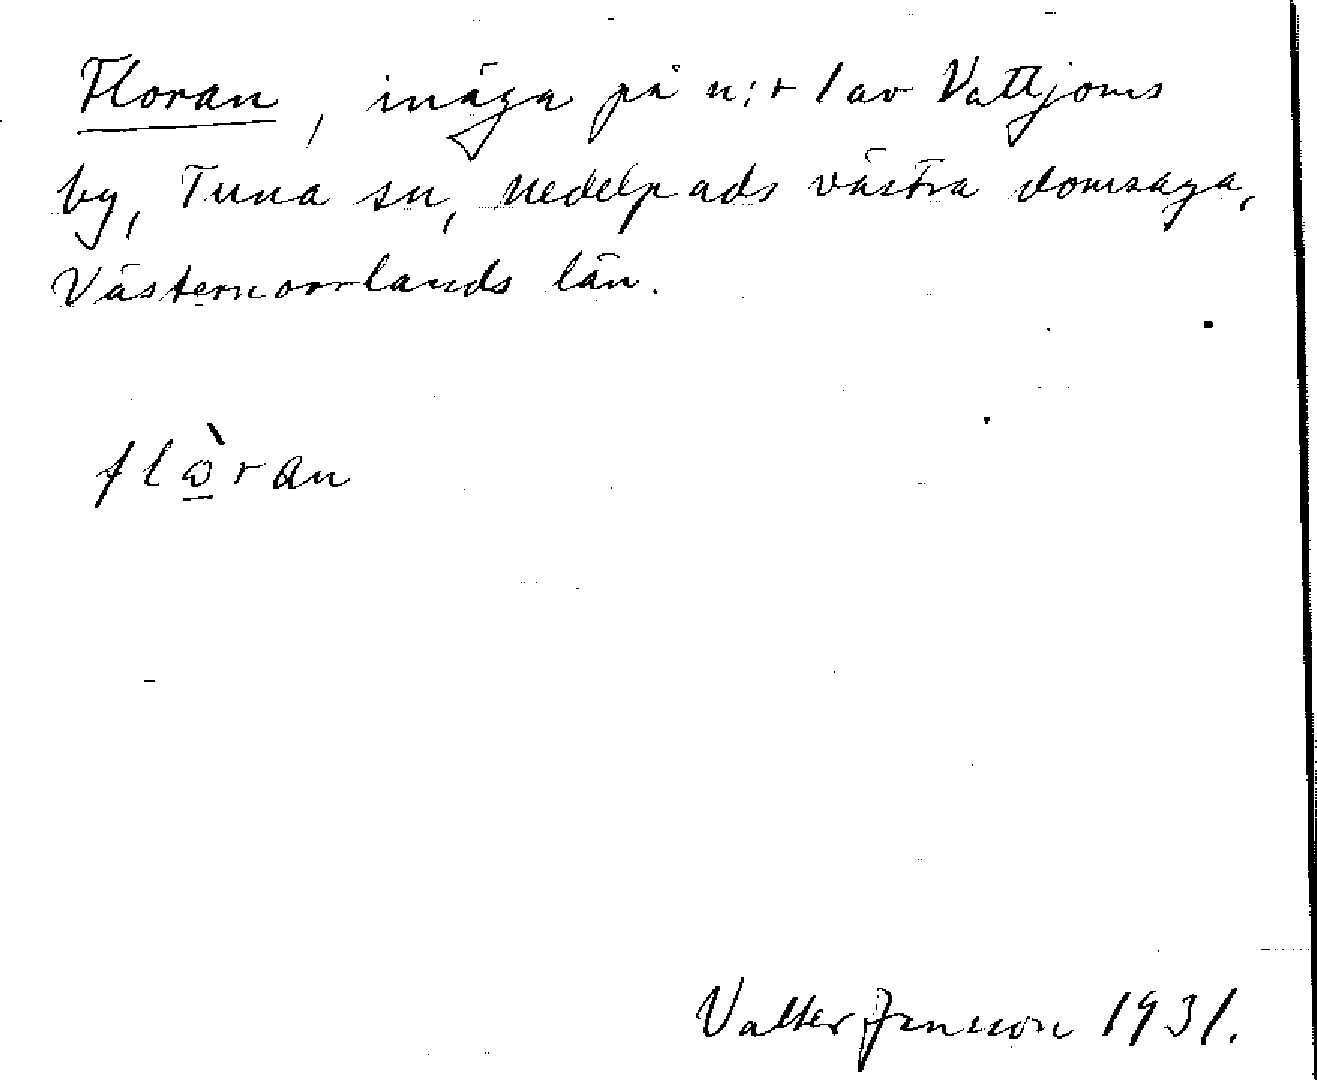 Floran, inäga på n:r 1 av Vattjoms
by, Tuna sn, Medelpads västra domsaga,
Västernorrlands län.
flὼ̲ran
Valter Jansson 1931.